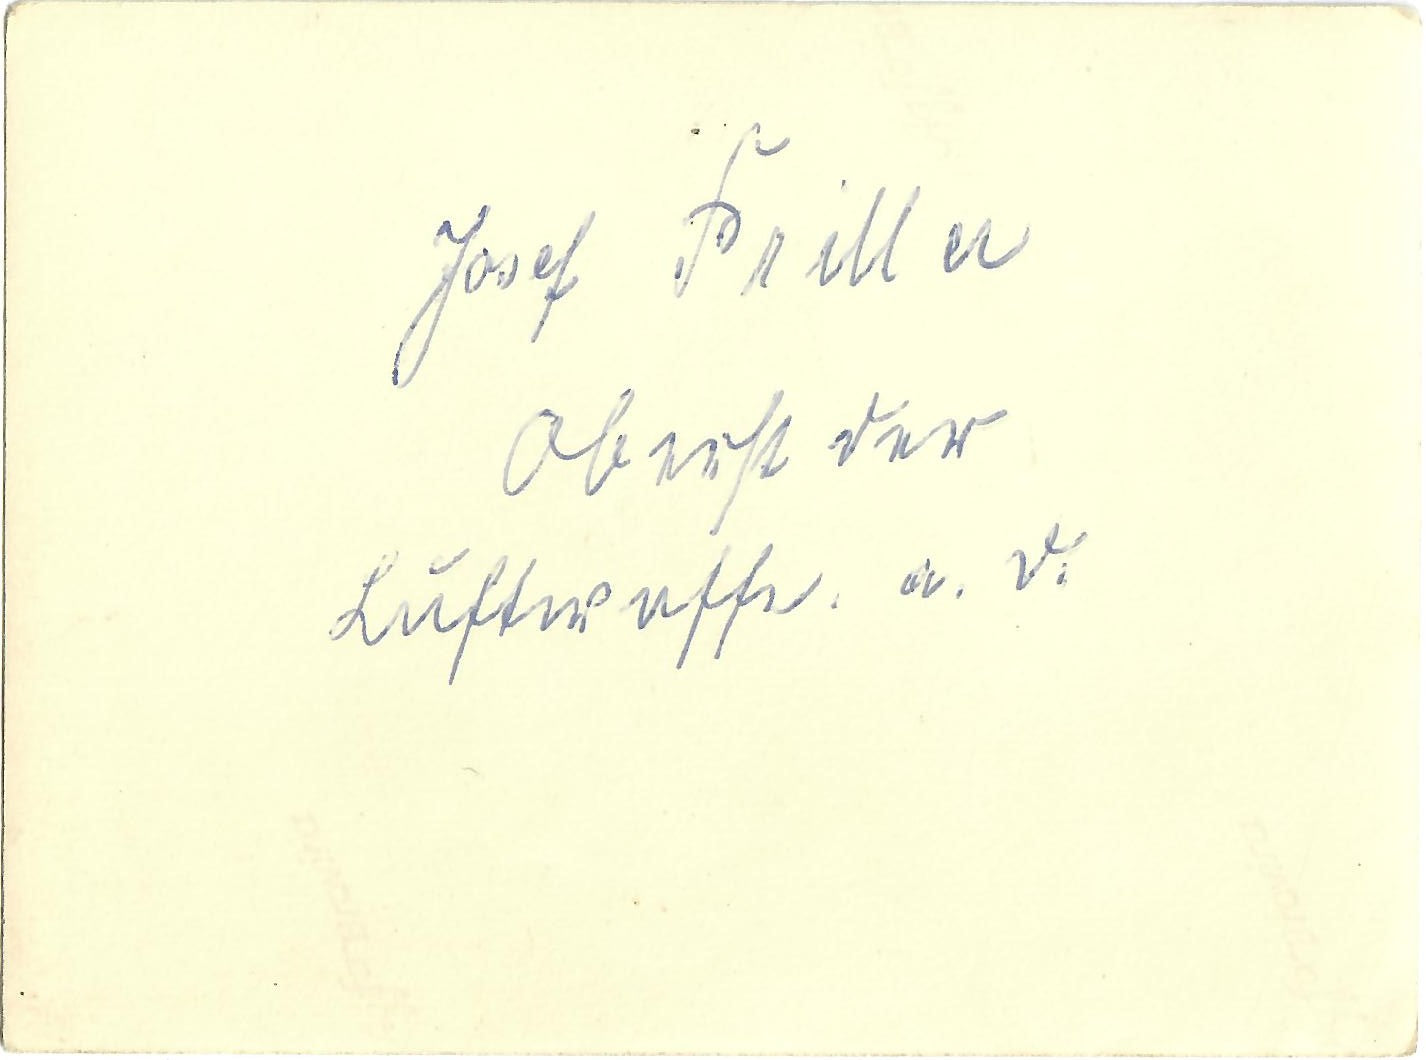 Josef Priller
Oberst der
Luftwaffe. a. D.